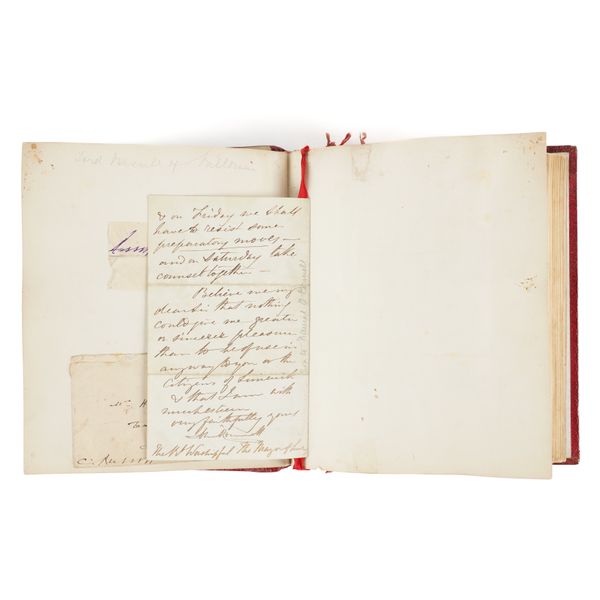 Lord Russell of Killowen
& on Friday we shall
have to resist some
preparatory moves —
and on Saturday take
counsel together —
Believe me my
dear sir that nothing
could give me greater
or sincerer pleasure
than to be of use in
any way to you or the
Citizens of Limerick
& that I am with
much esteem
very faithfully yours
The Rt Worshipful The Mayor of
Daniel O'Connell
C. Russell